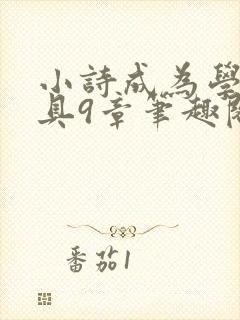 小詩成為學
具9章筆趣閣
番茄1